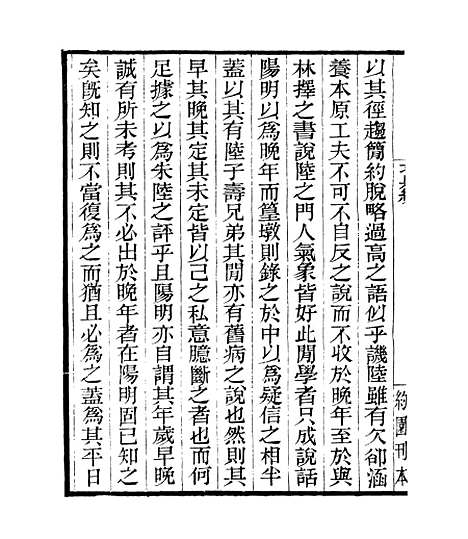 以其徑趨簡約脫略過高之語似乎譏陸雖有欠卻涵
養本原工夫不可不自反之說而不收於晚年至於與
林擇之書說陸之門人氣象皆好此閒學者只成說話
陽明以爲晚年而篁墩則錄之於中以爲疑信之相半
蓋以其有陸子壽兄弟其閒亦有舊病之說也然則其
早其晚其定其未定皆以己之私意臆斷之者也而何
足據之以爲朱陸之評乎且陽明亦自謂其年歲早晚
誠有所未考則其不必出於晚年者在陽明固已知之
矣旣知之則不當復爲之而猶且必爲之蓋爲其平日
約園刊本